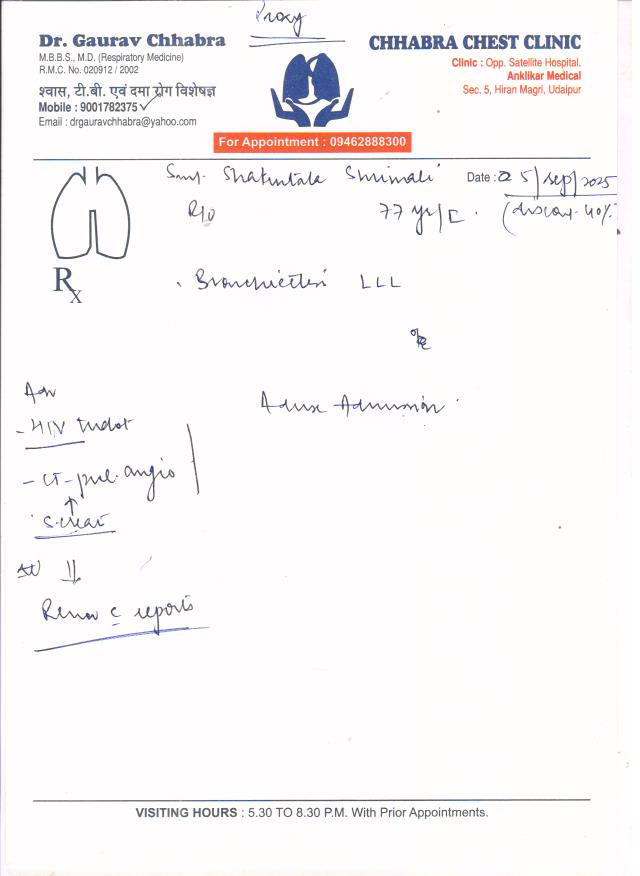 Proxy
Dr. Gaurav Chhabra
M.B.B.S., M.D. (Respiratory Medicine)
R.M.C. No. 020912 / 2002
श्वास, टी.बी. एवं दमा रोग विशेषज्ञ
Mobile : 9001782375
Email : drgauravchhabra@yahoo.com
CHHABRA CHEST CLINIC
Clinic : Opp. Satellite Hospital.
Anklikar Medical
Sec. 5, Hiran Magri, Udaipur
For Appointment : 09462888300
Smt. Shakuntala Shrimali
Date : 25/sep/2025
R/o 77 yr/
40%
Rx
LLL
Adv
Advise Admission
- HIV
- CT - pul. angio
↑
S. creat
⇓
Review c reports
VISITING HOURS : 5.30 TO 8.30 P.M. With Prior Appointments.